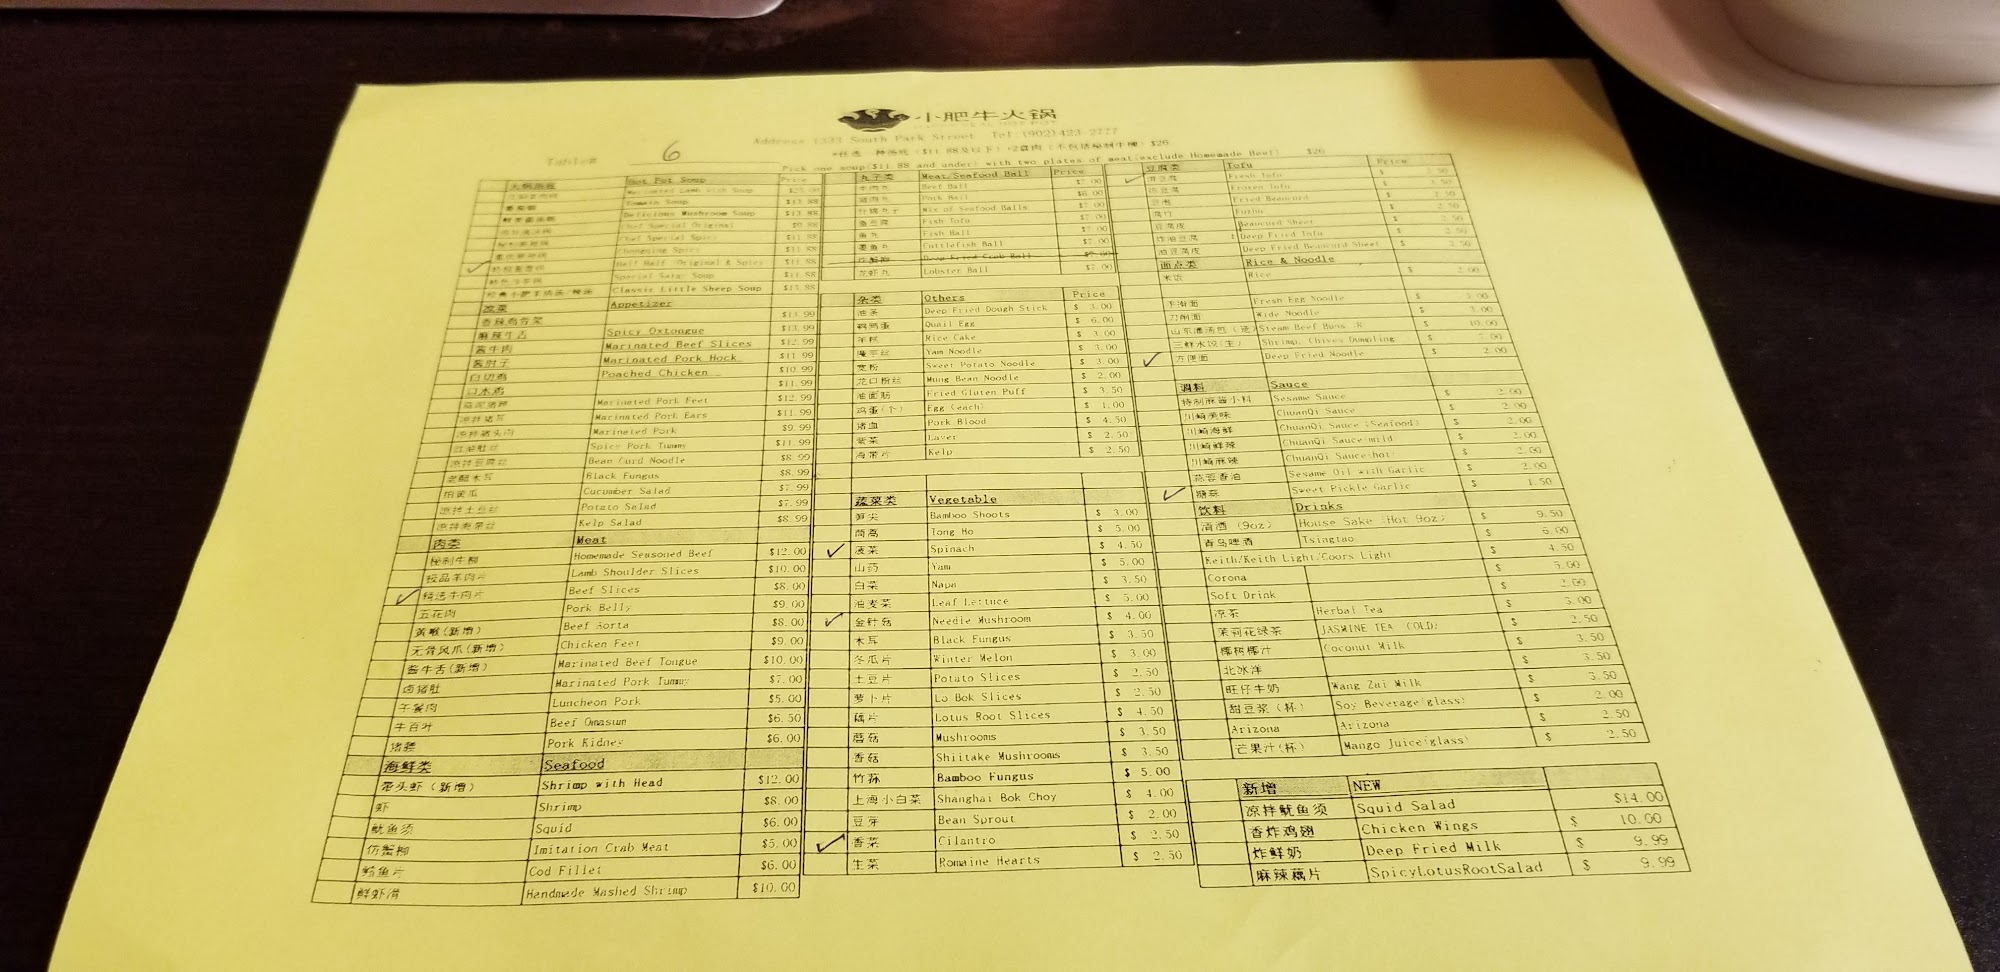 小肥牛火锅
Address 1333 South Park Street Tel:(902)423 2777
Table# 6
Pick one soup($11.88 and under) with two plates of meat(exclude Homemade Beef) $26
Hot Pot Soup Price
Marinated Lamb with Soup
Tomato Soup $13.88
Delicious Mushroom Soup $13.88
Chef Special Original
Chef Special Spicy $11.88
Chongqing Spicy $11.88
Half Half (Original & Spicy) $11.88
Special Satay Soup $11.88
Classic Little Sheep Soup $13.88
凉菜 Appetizer
香辣鸡骨架 $13.99
麻辣牛舌 Spicy Oxtongue $13.99
酱牛肉 Marinated Beef Slices $12.99
酱肘子 Marinated Pork Hock $11.99
白切鸡 Poached Chicken $10.99
口水鸡 $11.99
Marinated Pork Feet $12.99
凉拌猪耳 Marinated Pork Ears $11.99
凉拌猪头肉 Marinated Pork $9.99
红油肚丝 Spicy Pork Tummy $11.99
凉拌豆腐丝 Bean Curd Noodle $8.99
老醋木耳 Black Fungus $8.99
拍黄瓜 Cucumber Salad $7.99
凉拌土豆丝 Potato Salad $7.99
凉拌海带丝 Kelp Salad $8.99
肉类 Meat
秘制牛柳 Homemade Seasoned Beef $12.00
极品羊肉片 Lamb Shoulder Slices $10.00
精选牛肉片 Beef Slices $8.00
五花肉 Pork Belly $9.00
黄喉(新增) Beef Aorta $8.00
无骨凤爪(新增) Chicken Feet $9.00
酱牛舌(新增) Marinated Beef Tongue $10.00
卤猪肚 Marinated Pork Tummy $7.00
午餐肉 Luncheon Pork $5.00
牛百叶 Beef Omasum $6.50
猪腰 Pork Kidney $6.00
海鲜类 Seafood
带头虾(新增) Shrimp with Head $12.00
虾 Shrimp $8.00
鱿鱼须 Squid $6.00
仿蟹柳 Imitation Crab Meat $5.00
鳕鱼片 Cod Fillet $6.00
鲜虾滑 Handmade Mashed Shrimp $10.00
丸子类 Meat/Seafood Ball Price
牛肉丸 Beef Ball $7.00
猪肉丸 Pork Ball $6.00
什锦丸子 Mix of Seafood Balls $7.00
鱼豆腐 Fish Tofu $7.00
鱼丸 Fish Ball $7.00
墨鱼丸 Cuttlefish Ball $7.00
炸蟹柳 Deep Fried Crab Ball
龙虾丸 Lobster Ball $7.00
杂类 Others Price
油条 Deep Fried Dough Stick $ 3.00
鹌鹑蛋 Quail Egg $ 6.00
年糕 Rice Cake $ 3.00
魔芋丝 Yam Noodle $ 3.00
宽粉 Sweet Potato Noodle $ 3.00
龙口粉丝 Mung Bean Noodle $ 2.00
油面筋 Fried Gluten Puff $ 3.50
鸡蛋(个) Egg (each) $ 1.00
猪血 Pork Blood $ 4.50
紫菜 Laver $ 2.50
海带片 Kelp $ 2.50
蔬菜类 Vegetable
笋尖 Bamboo Shoots $ 3.00
茼蒿 Tong Ho $ 5.00
菠菜 Spinach $ 4.50
山药 Yam $ 5.00
白菜 Napa $ 3.50
油麦菜 Leaf Lettuce $ 5.00
金针菇 Needle Mushroom $ 4.00
木耳 Black Fungus $ 3.50
冬瓜片 Winter Melon $ 3.00
土豆片 Potato Slices $ 2.50
萝卜片 Lo Bok Slices $ 2.50
藕片 Lotus Root Slices $ 4.50
蘑菇 Mushrooms $ 3.50
香菇 Shiitake Mushrooms $ 3.50
竹荪 Bamboo Fungus $ 5.00
上海小白菜 Shanghai Bok Choy $ 4.00
豆芽 Bean Sprout $ 2.00
香菜 Cilantro $ 2.50
生菜 Romaine Hearts $ 2.50
豆腐类 Tofu Price
Fresh Tofu $
冻豆腐 Frozen Tofu $
Fried Beancurd $
腐竹 Fuzhu $ 2.50
豆腐皮 Beancurd Sheet $ 2.50
炸油豆腐 Deep Fried Tofu $ 2.50
油豆腐皮 Deep Fried Beancurd Sheet $ 2.50
面点类 Rice & Noodle
米饭 Rice $ 2.00
Fresh Egg Noodle $ 3.00
刀削面 Wide Noodle $ 3.00
Steam Beef Buns $ 10.00
三鲜水饺(生) Shrimp, Chives Dumpling $ 7.00
方便面 Deep Fried Noodle $ 2.00
调料 Sauce
特制麻酱小料 Sesame Sauce $ 2.00
川崎美味 ChuanQi Sauce $ 2.00
川崎海鲜 ChuanQi Sauce (Seafood) $ 2.00
川崎鲜辣 ChuanQi Sauce(mild) $ 2.00
川崎麻辣 ChuanQi Sauce(hot) $ 2.00
蒜蓉香油 Sesame Oil with Garlic $ 2.00
糖蒜 Sweet Pickle Garlic $ 1.50
饮料 Drinks
清酒 (9oz) House Sake (Hot 9oz) $ 9.50
青岛啤酒 Tsingtao $ 6.00
Keith/Keith Light/Coors Light $ 4.50
Corona $ 5.00
Soft Drink $ 2.00
凉茶 Herbal Tea $ 3.00
茉莉花绿茶 JASMINE TEA (COLD) $ 2.50
椰树椰汁 Coconut Milk $ 3.50
北冰洋 $ 3.50
旺仔牛奶 Wang Zai Milk $ 3.50
甜豆浆(杯) Soy Beverage(glass) $ 2.00
Arizona Arizona $ 2.50
芒果汁(杯) Mango Juice(glass) $ 2.50
新增 NEW
凉拌鱿鱼须 Squid Salad $14.00
香炸鸡翅 Chicken Wings $ 10.00
炸鲜奶 Deep Fried Milk $ 9.99
麻辣藕片 SpicyLotusRootSalad $ 9.99